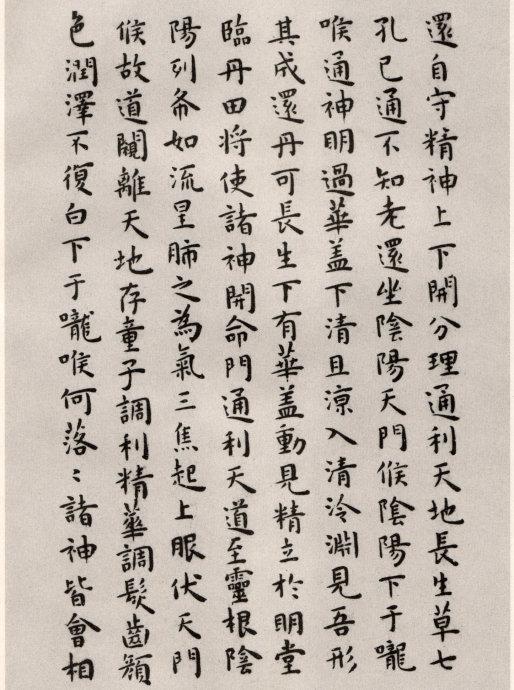 還自守精神上下開分理通利天地長生草七
孔已通不知老還坐陰陽天門候陰陽下于嚨
喉通神明過華盖下清且涼入清泠淵見吾形
其成還丹可長生下有華盖動見精立於明堂
臨丹田将使諸神開命門通利天道至靈根陰
陽列布如流星肺之為氣三焦起上服伏天門
候故道闚離天地存童子調利精華調髮齒顏
色潤澤不復白下于嚨喉何落〻諸神皆會相